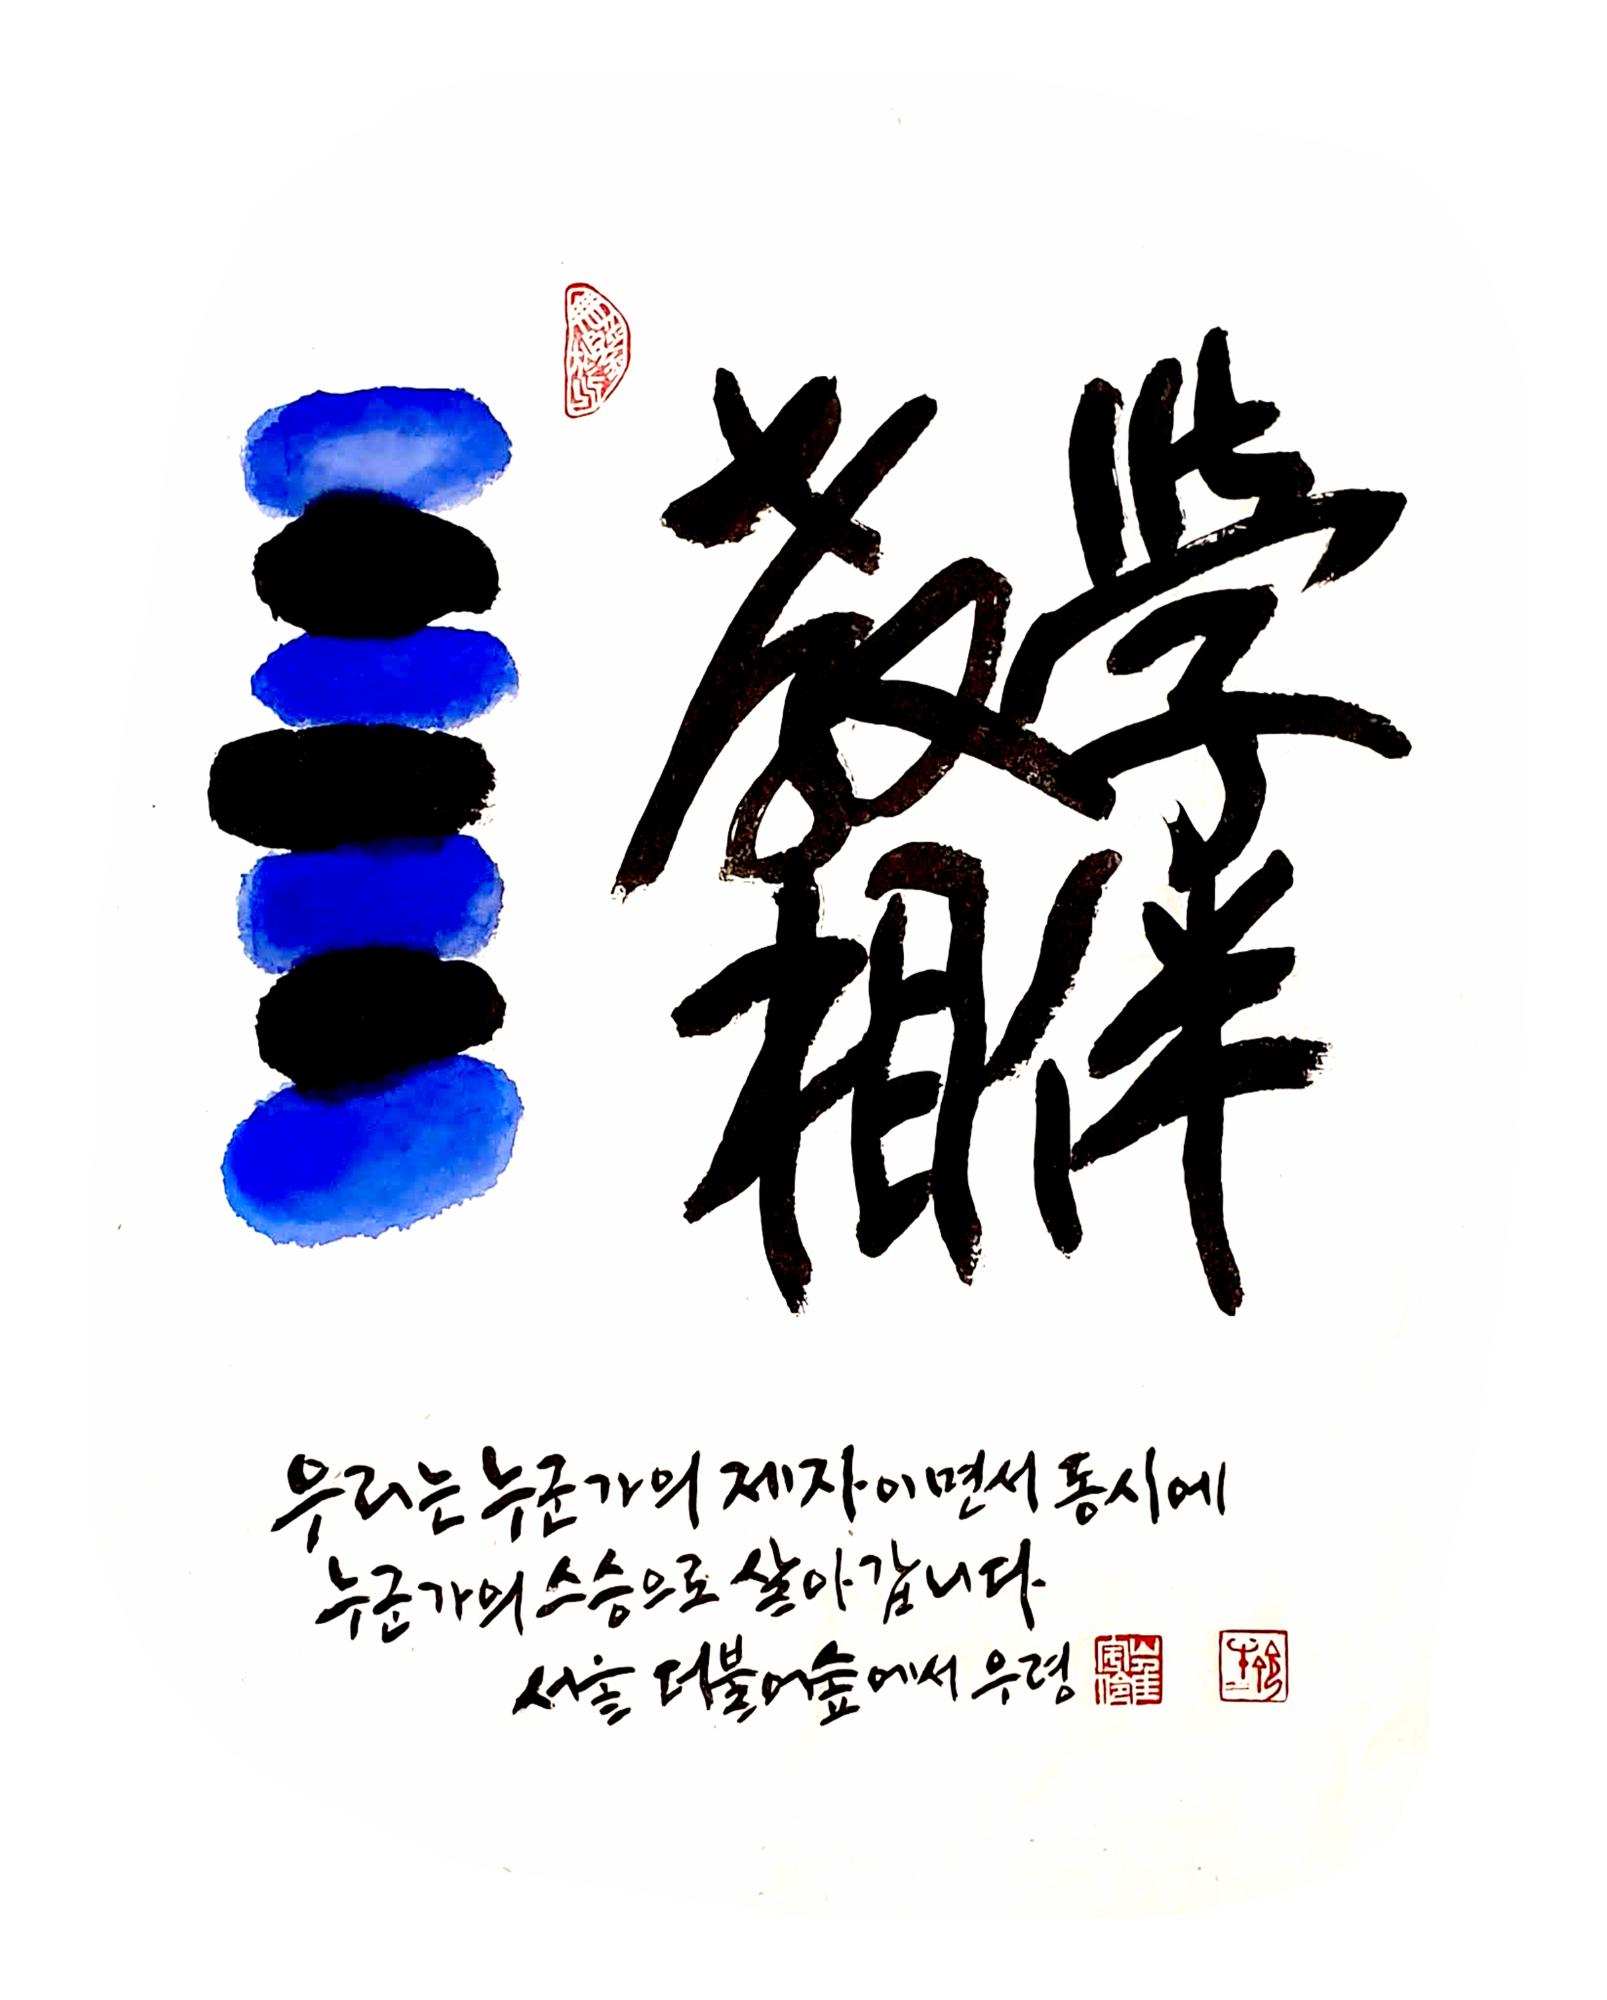 敎學
相伴
우리는 누군가의 제자이면서 동시에
누군가의 스승으로 살아갑니다
서울 더불어숲에서 우령